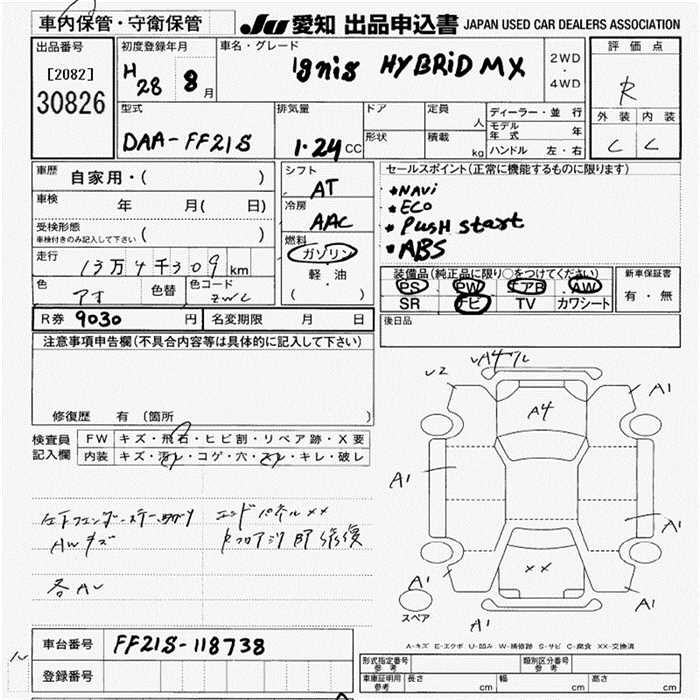 車内保管・守衛保管
JU 愛知 出品申込書 JAPAN USED CAR DEALERS ASSOCIATION
出品番号
[2082]
30826
初度登録年月
H28 8月
車名・グレード
ignis HYBRiD MX
2WD
・
4WD
評価点
R
外装 内装
C C
型式
DAA-FF21S
排気量
1.24 CC
ドア
形状
定員
人
積載
kg
ディーラー・並行
モデル年式 年
ハンドル 左・右
車歴
自家用・( )
車検
年 月( 日)
受検形態
車検付きのみ記入して下さい ( )
走行
13万4千309 km
色
アオ
色替
色コード
ZWC
シフト
AT
冷房
AAC
燃料
ガソリン
軽・油
( )
セールスポイント(正常に機能するものに限ります)
*NAVi
*ECO
*PusH start
*ABS
装備品(純正品に限り○をつけてください)
PS PW エアB AW
SR ナビ TV カワシート
新車保証書
有・無
R券 9030 円
名変期限 月 日
後日品
注意事項申告欄(不具合内容等は具体的に記入して下さい)
修復歴 有 (箇所 )
検査員
記入欄
FW キズ・飛石・ヒビ割・リペア跡・X要
内装 キズ・汚レ・コゲ・穴・スレ・キレ・破レ
エンドパネル××
AWキズ
各AU
U2
A4
A1
A1
A1
A1
××
A1
A1
A1
スペア
A-キズ E-エクボ U-凹み W-補修跡 S-サビ C-腐食 XX-交換済
車台番号
FF21S-118738
登録番号
形式指定番号
参考
類別区分番号
参考
車庫証明用
参考
長さ cm
幅 cm
高さ cm